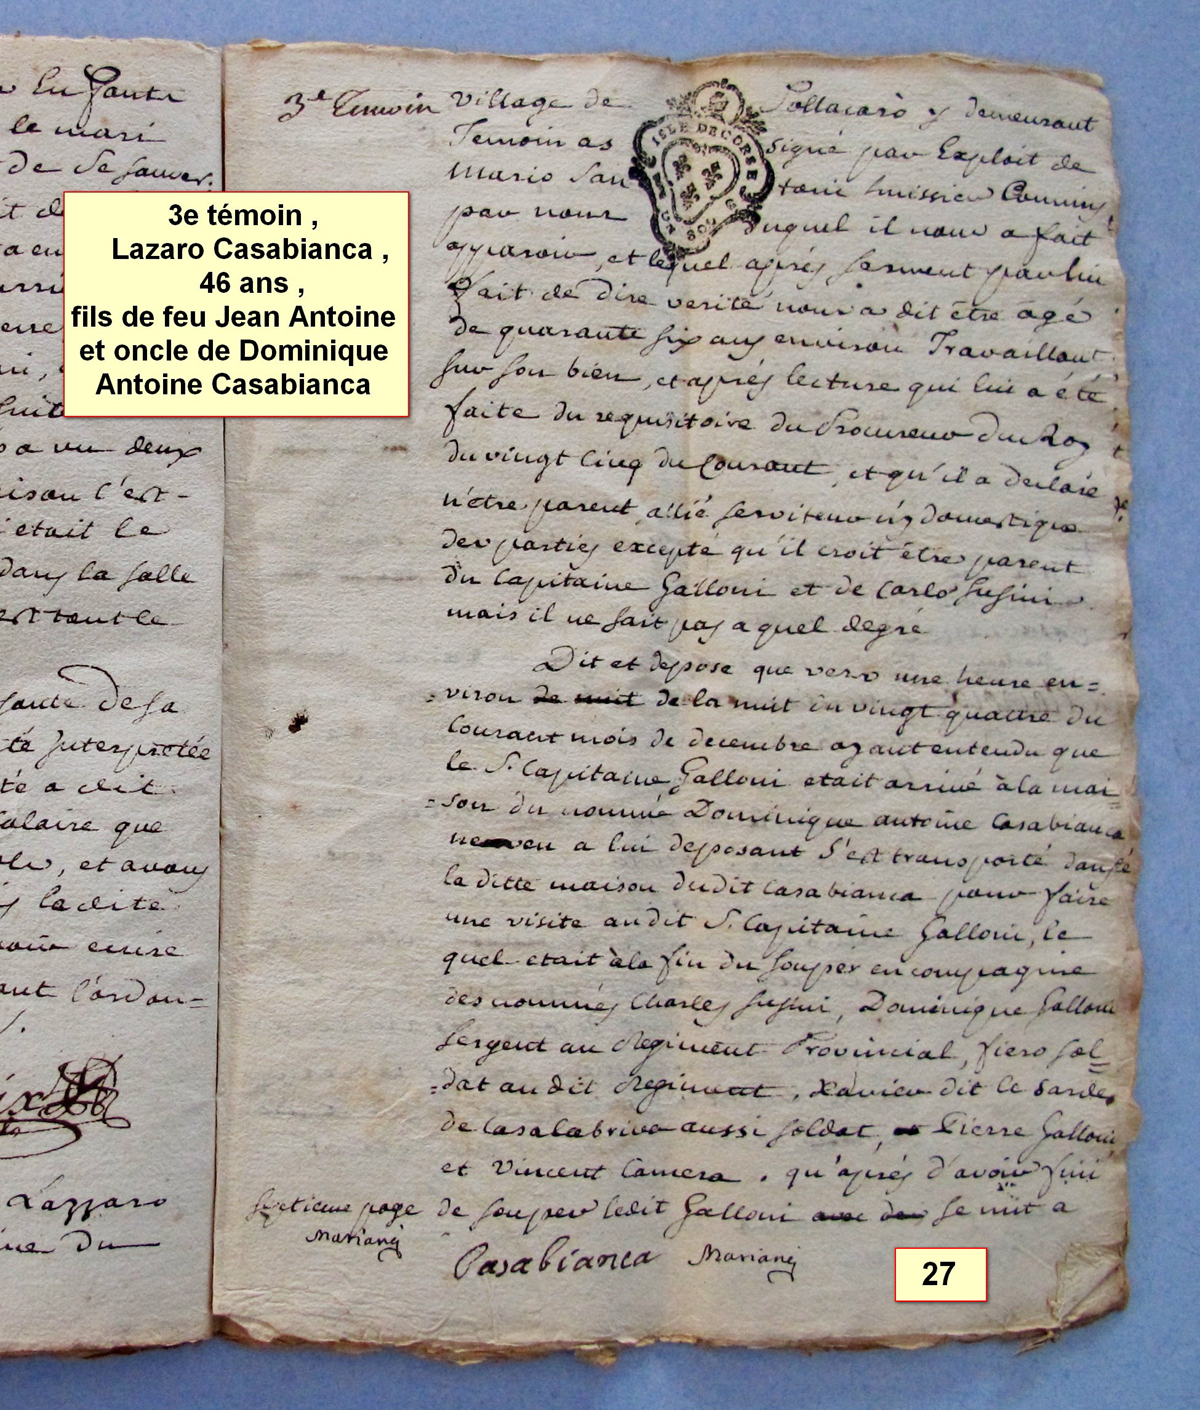 le mari
de se sauver.
a vu deux
était le
dans la salle
té Interpretée
té a dit
Salaire que
et avons
ladite
Lazzaro
du
3e témoin ,
Lazaro Casabianca ,
46 ans ,
fils de feu Jean Antoine
et oncle de Dominique
Antoine Casabianca
3e Temoin
village de Pollacaro y demeurant
Temoin assigné par Exploit de
Mario Santoni huissier Commis
par nous duquel il nous a fait
apparoir, et lequel aprés serment par lui
fait de dire verité nous a dit être agé
de quarante six ans environ Travaillant
sur son bien, et aprés lecture qui lui a été
faite du requisitoire du Procureur du Roy
du vingt cinq du Courant, et qu'il a declaré
n'être parent allié serviteur ny domestique
des parties excepté qu'il croit être parent
du Capitaine Galloni et de Carlo Susini
mais il ne sait pas a quel degré
Dit et depose que vers une heure en=
=viron de nuit de la nuit du vingt quattre du
Courant mois de decembre ayant entendu que
le S. Capitaine Galloni etait arrivé à la mai
=son du nommé Dominique antoine Casabianca
neveu a lui deposant s'est transporté dans
la ditte maison dudit Casabianca pour faire
une visite audit S. Capitaine Galloni, le
quel etait à la fin du souper en compagnie
des nommés Charles Susini, Dominique Galloni
sergent au Regiment Provincial, fiero sol
=dat audit Regiment, Xavier dit le Sarde
de Casalabriva aussi soldat, et Pierre Galloni
et Vincent Camera. qu'aprés d'avoir fini
de souper ledit Galloni avec des se mit a
Septieme page
Mariani
Casabianca Mariani
ISLE DE CORSE
27